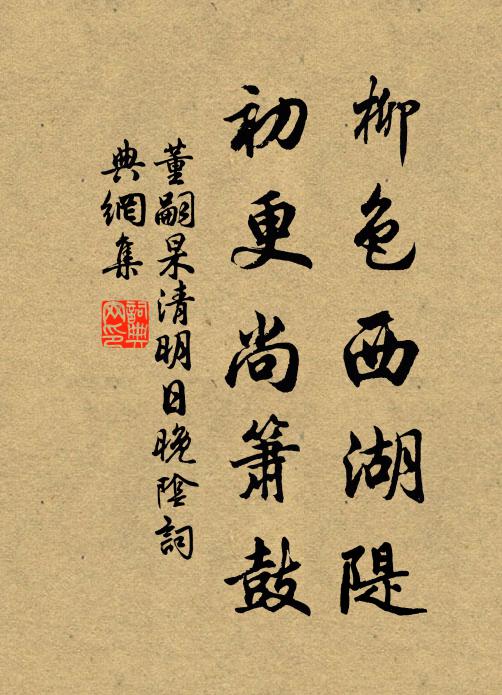 柳色西湖隄
初更尚簫鼓
董嗣杲清明日晚陰詞
典網集
詞典网印